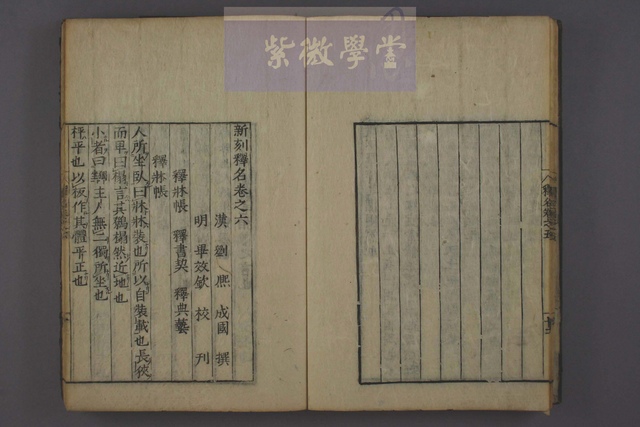 紫微學堂
新刻釋名卷之六
漢 劉熙成國 撰
明 畢效欽 校刊
釋牀帳 釋書契 釋典藝
釋牀帳
人所坐臥曰牀牀裝也所以自裝載也長狹
而卑曰榻言其鶡榻然近地也
小者曰獨主人無二獨所坐也
枰平也以板作其體平正也
釋名卷之五